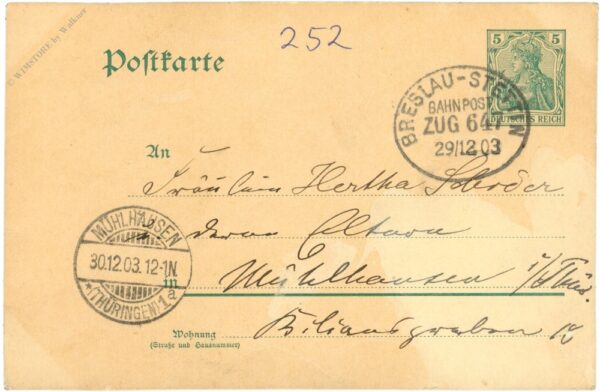 © WIMSTORE by Walkner
252
Postkarte
5 5
DEUTSCHES REICH
BRESLAU-STETTIN
BAHNPOST
ZUG 647
29/12 03
An
Fräulein Hertha Schroder
deren Eltern
MÜHLHAUSEN
30.12.03.12-1N.
*(THÜRINGEN)1a
in
Mühlhausen i/Thür.
Wohnung
(Straße und Hausnummer)
Kiliansgraben